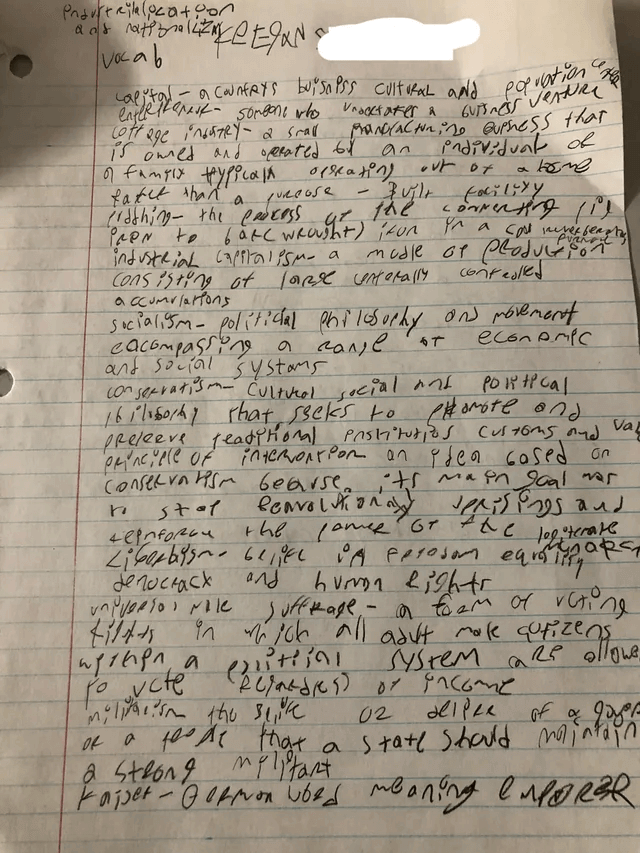 industrialization
and nationalizm KEEGAN S
vocab
capital - a countrys buisness cultural and population center
entrepreneur - someone who undertakes a buisness venture
cottage industry - a small manufacturing buisness that
is owned and operated by an individual or
a family typicaly operating out of a home
rather than a purpose - built facility
puddling - the process of the converting pig
iron to bar(wrought) iron in a coal reverberatory furnace
industrial capitalism - a mode of production
consisting of large centerally controlled
accumulations
socialism - political philosophy and movement
encompassing a range of economic
and social systems
conservatism - cultural social and political
philosophy that seeks to promote and
preserve traditional institutions customs and val
principle of intervention an idea based on
conservatism because its main goal was
to stop revolutionary uprisings and
reinforce the power of the legitimate
Liberalism - belief in freedom equality monarch
democracy and human rights
universal male suffrage - a form of voting
rights in which all adult male citizens
within a political system are allowe
to vote regardless of income
militarism the belief or desire of a gover
or a people that a state should maintain
a strong militart
Kaiser - German word meaning EMPORER